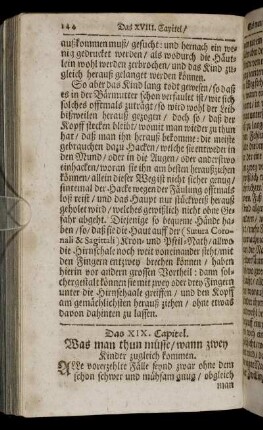 144 Das XVIII. Capitel/
außkommen muß/ gesucht: und hernach ein we-
nig gedrucket werden/ als wodurch die Häut-
lein wohl werden zerbrochen/ und das Kind zu-
gleich herauß gelanget werden können.
So aber das Kind lang todt gewesen/ so daß
es in der Bärmutter schon verfault ist/ wie sich
solches offtmals zuträgt/ so wird wohl der Leib
bißweilen herauß gezogen/ doch so/ daß der
Kopff stecken bleibt/ womit man wieder zu thun
hat/ daß man ihn herauß bekomme: die meiste
gebrauchen dazu Hacken/ welche sie entweder in
den Mund/ oder in die Augen/ oder anderstwo
einhacken/ woran sie ihn am besten herauß ziehen
können/ allein dieser Weg ist nicht sicher genug/
sintemal der Hacke wegen der Fäulung offtmals
loß reist/ und das Haupt nur stückweiß herauß
geholet wird/ welches gewißlich nicht ohne Ge-
fahr abgeht. Diejenige so bequeme Hände ha-
ben/ so/ daß sie die Haut auff der (Sutura Coro-
nali & Sagittali) Kron- und Pfeil-Nath/ allwo
die Hirnschale noch weit voneinander ist/ mit
den Fingern entzwey brechen können/ haben
hierin vor andern grossen Vortheil: dann sol-
chergestalt können sie mit zwey oder drey Fingern
unter die Hirnschaale greiffen/ und den Kopff
am gemächlichsten herauß ziehen/ ohne etwas
davon dahinten zu lassen.
Das XIX. Capitel.
Was man thun müsse/ wann zwey
Kinder zugleich kommen.
Alle vorerzehlte Fälle seynd zwar ohne dem
schon schwer und mühsam gnug/ obgleich
man